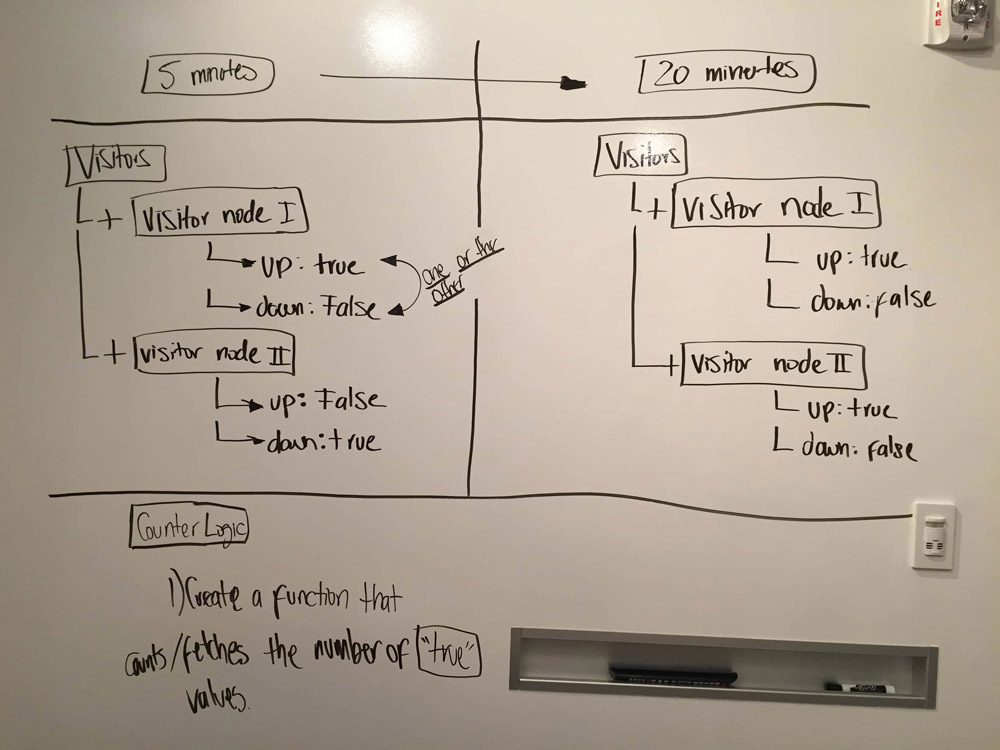 5 minutes
20 minutes
Visitors
+ Visitor node I
up: true
down: False
one or the
other
+ visitor node II
up: False
down: true
Visitors
+ Visitor node I
up: true
down: false
+ Visitor node II
up: true
down: False
Counter Logic
1) Create a function that
counts/fetches the number of "true"
values.
IRE